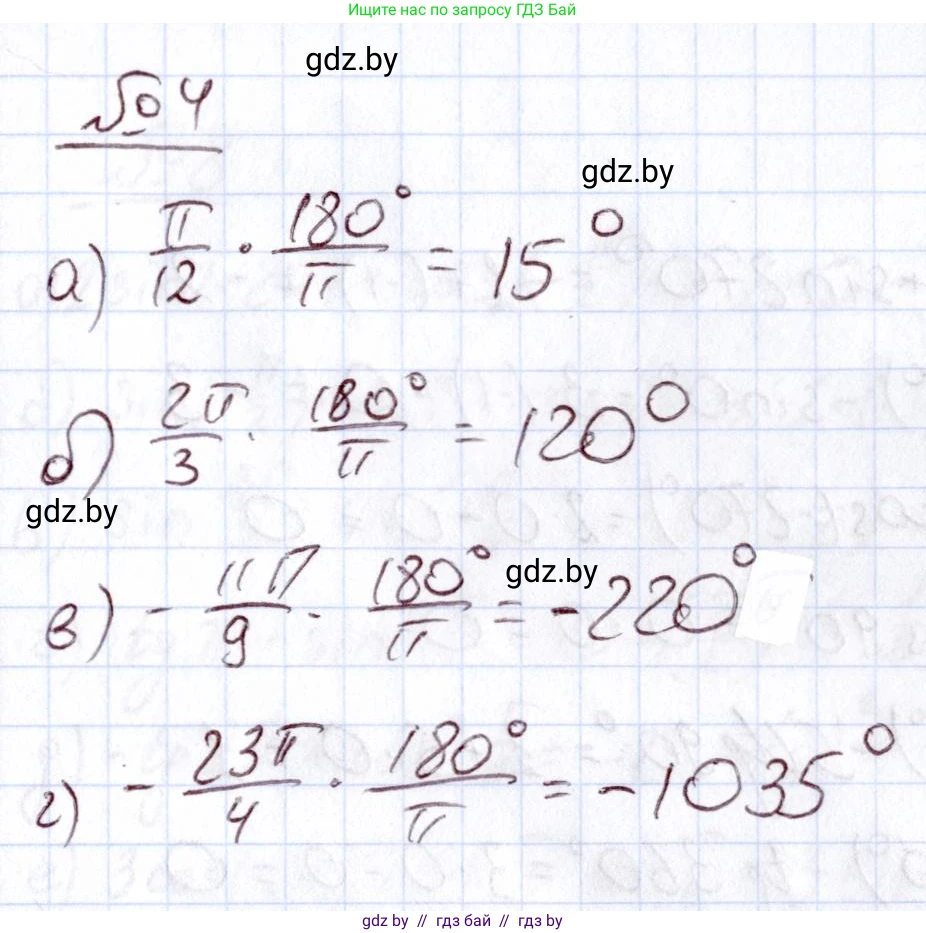 Ищите нас по запросу ГДЗ Бай
gdz.by
№ 4
gdz.by
а) π/12 · 180°/π = 15°
б) 2π/3 · 180°/π = 120°
gdz.by
gdz.by
в) - 11π/9 · 180°/π = -220°
г) - 23π/4 · 180°/π = -1035°
gdz by // гдз бай // gdz by